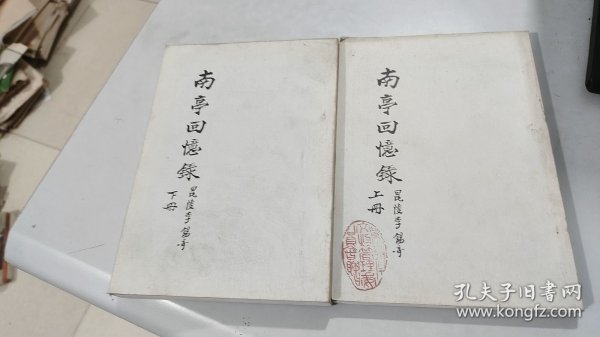 南亭回憶錄
上冊
昆陵李錫奇
南亭回憶錄
下冊
昆陵李錫奇
孔夫子旧书网
www.kongfz.com